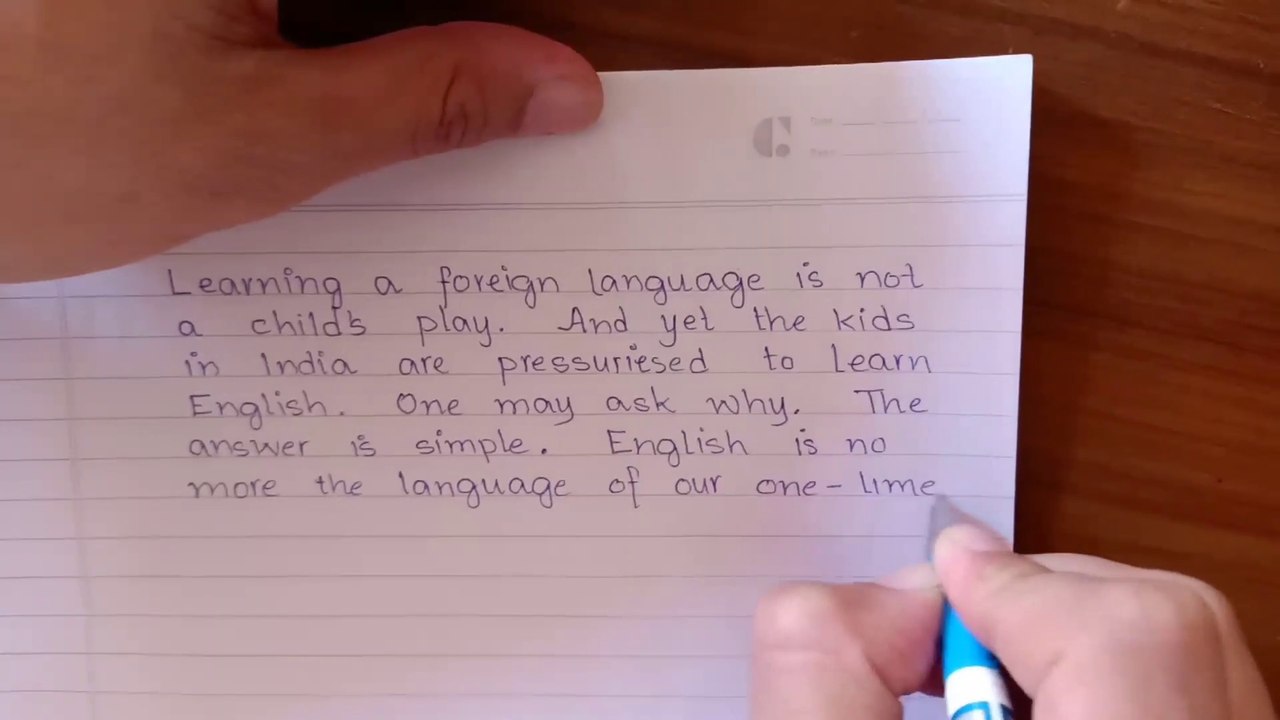 Learning a foreign language is not
a child's play. And yet the kids
in India are pressuriesed to learn
English. One may ask why. The
answer is simple. English is no
more the language of our one-lime